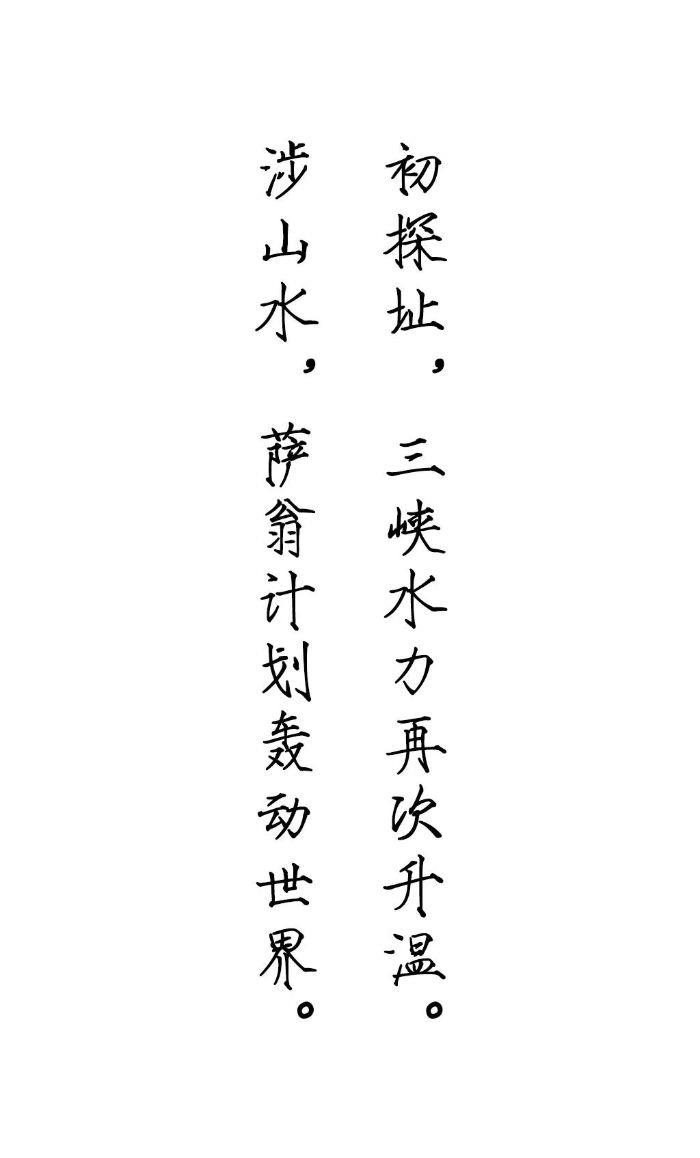 初探址，三峡水力再次升温。
涉山水，萨翁计划轰动世界。